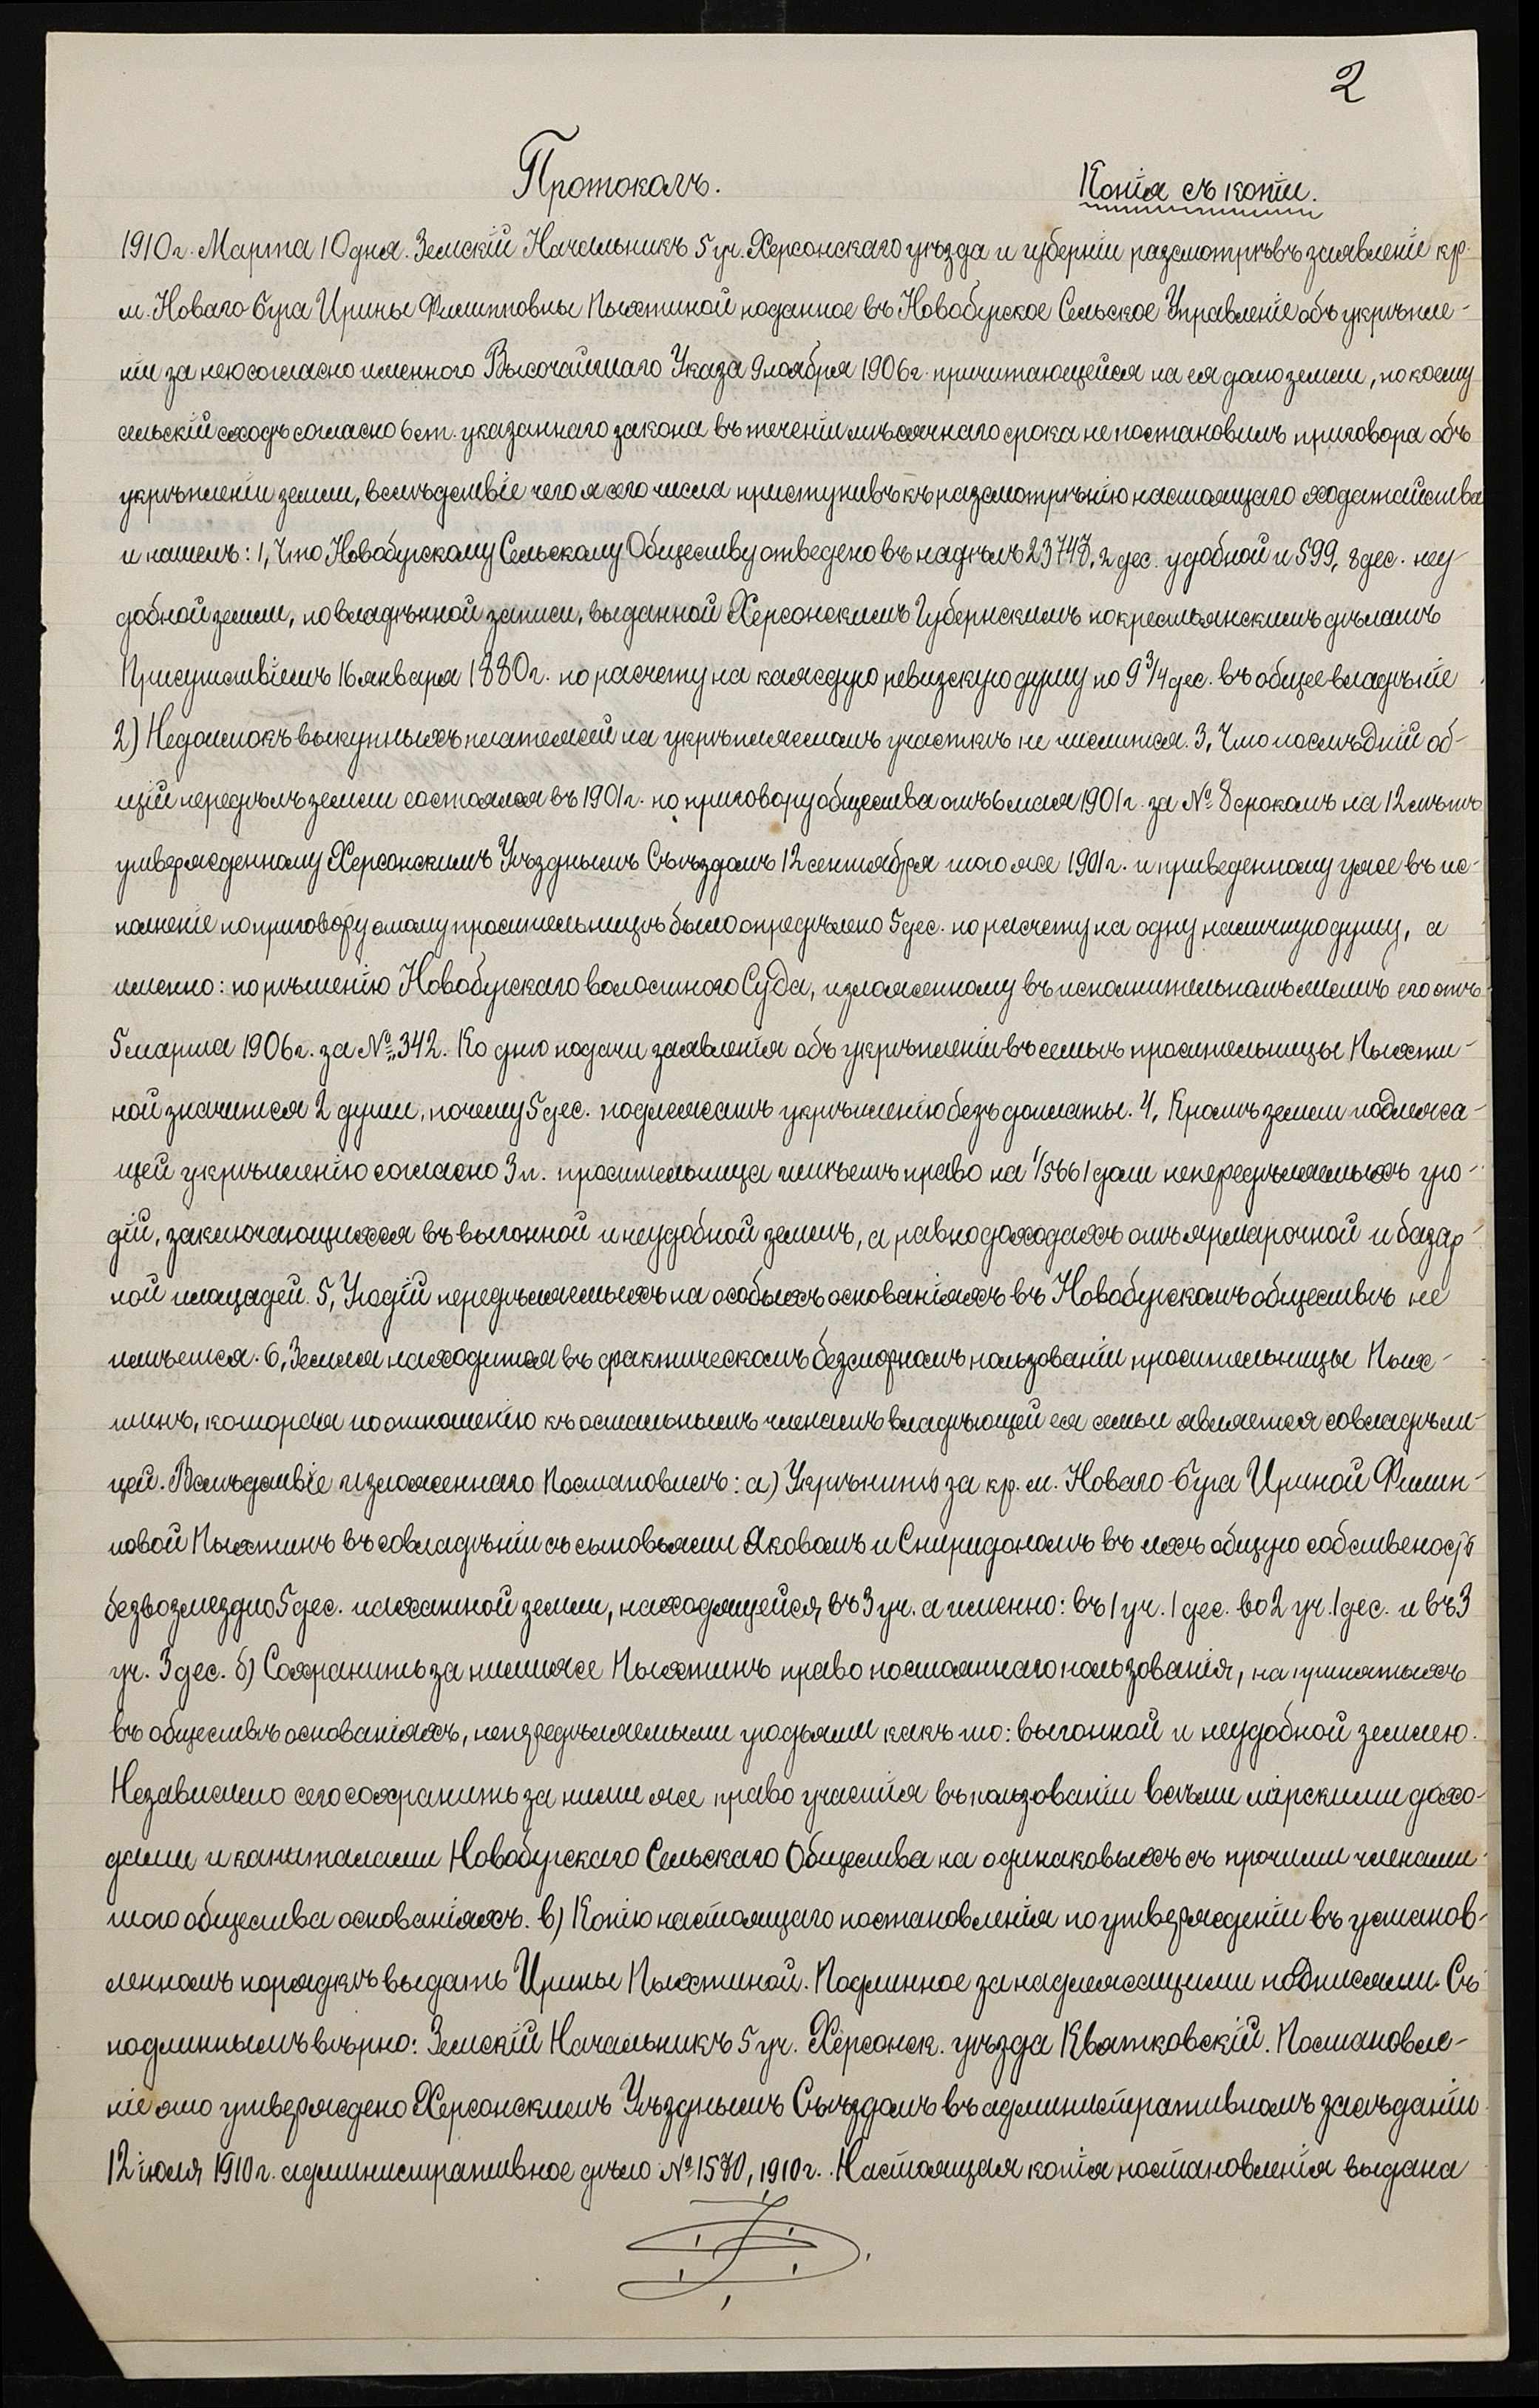 2
Протоколъ. Копія съ копіи.
1910 г. Марта 10 дня. Земскій Начальникъ 5 уч. Херсонскаго уѣзда и губерніи разсмотрѣвъ заявленіе кр.
м. Новаго Буга Ирины Филипповны Пыхтиной поданное въ Новобугское Сельское Управленіе объ укрѣпле-
ніи за нею согласно именного Высочайшаго Указа 9 ноября 1906 г. причитающейся на ея долю земли, по коему
сельскій сходъ согласно 6 ст. указаннаго закона въ теченіи мѣсячнаго срока не постановилъ приговора объ
укрѣпленіи земли, вслѣдствіе чего я сего числа приступивъ къ разсмотрѣнію настоящаго ходатайства
и нашелъ: 1, Что Новобугскому Сельскому Обществу отведено въ надѣлъ 23748,2 дес. удобной и 599,8 дес. неу-
добной земли, по владѣнной записи, выданной Херсонскимъ Губернскимъ по крестьянскимъ дѣламъ
Присутствіемъ 16 января 1880 г. по расчету на каждую ревизскую душу по 9 3/4 дес. въ общее владѣніе
2) Недоимокъ выкупныхъ платежей на укрѣпляемомъ участкѣ не числится. 3, Что послѣдній об-
щій передѣлъ земли состоялся въ 1901 г. по приговору общества отъ 6 мая 1901 г. за № 8 срокомъ на 12 лѣтъ
утвержденному Херсонскимъ Уѣзднымъ Съѣздомъ 12 сентября того же 1901 г. и приведенному уже въ ис-
полненіе по приговору этому просительницѣ было опредѣлено 5 дес. по расчету на одну наличную душу, а
именно: по рѣшенію Новобугскаго волостного Суда, изложенному въ исполнительномъ листѣ его отъ
5 марта 1906 г. за № 342. Ко дню подачи заявленія объ укрѣпленіи въ семьѣ просительницы Пыхти-
ной значится 2 души, почему 5 дес. подлежатъ укрѣпленію безъ доплаты. 4, Кромѣ земли подлежа-
щей укрѣпленію согласно 3 п. просительница имѣетъ право на 1/5661 доли непередѣляемыхъ уго-
дій, заключающихся въ выгонной и неудобной землѣ, а равно доходахъ отъ ярмарочной и базар-
ной площадей. 5, Угодій передѣляемыхъ на особыхъ основаніяхъ въ Новобугскомъ обществѣ не
имѣется. 6, Земля находится въ фактическомъ безспорномъ пользованіи просительницы Пых-
тинъ, которая по отношенію къ остальнымъ членамъ владѣющей ея семьи является совладѣли-
цей. Вслѣдствіе изложеннаго Постановилъ: а) Укрѣпить за кр. м. Новаго-Буга Ириной Филип-
повой Пыхтинъ въ совладѣніи съ сыновьями Яковомъ и Спиридономъ въ ихъ общую собственость
безвозмездно 5 дес. пахатной земли, находящейся, въ 3 уч. а именно: въ 1 уч. 1 дес. во 2 уч. 1 дес. и въ 3
уч. 3 дес. б) Сохранить за ними же Пыхтинъ право постояннаго пользованія, на принятыхъ
въ обществѣ основаніяхъ, непередѣляемыми угодьями какъ то: выгонной и неудобной землею.
Независимо сего сохранить за ними же право участія въ пользованіи всѣми мірскими дохо-
дами и капиталами Новобугскаго Сельскаго Общества на одинаковыхъ съ прочими членами
того общества основаніяхъ. в) Копію настоящаго постановленія по утвержденіи въ установ-
ленномъ порядкѣ выдать Ирины Пыхтиной. Подлинное за надлежащими подписями. Съ
подлиннымъ вѣрно: Земскій Начальникъ 5 уч. Херсонск. уѣзда Квятковскій. Постановле-
ніе это утверждено Херсонскимъ Уѣзднымъ Съѣздомъ въ административномъ засѣданіи
12 іюля 1910 г. административное дѣло № 1580, 1910 г. Настоящая копія постановленія выдана